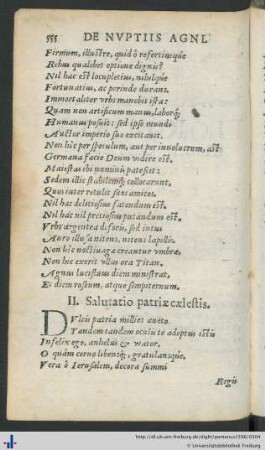 558 DE NVPTIIS AGNI.
Firmum, illustre, quid ò refertiusq́ue
Rebus qualibet optione dignis?
Nil hac est locupletius, nihilq́ue
Fortunatius, ac perinde durans.
Immortaliter vrbs manebit ista:
Quam non artificum manus, laborq́;
Humanus posuit: sed ipse mundi
Auctor imperio suo excitauit.
Non hîc per speculum, aut per inuolucrum, ast
Germana facie Deum videre est.
Maiestas ibi numinis patescit:
Sedem illic stabilemq́; collocarunt,
Quos inter retulit suos amicos.
Nil hac delitiosius fatendum est.
Nil hac nil pretiosius putandum est.
Vrbs argentea de foris, sed intus
Auro illusa nitens, nitens lapillis.
Non hîc noctiuagæ creantur vmbræ:
Non hec exerit vllus ora Titan.
Agnus lucis laus diem ministrat,
Et diem roseum, atque sempiternum.
II. Salutatio patriæ cælestis.
DVlcis patria millies aueto
Tandem tandem oculis te adeptus istis
Infelix ego, anhelus & viator,
O quàm cerno libensq́;, gratulansque.
Vera ô Ierosalem, decora summi
Regis
http://dl.ub.uni-freiburg.de/diglit/pontanus1596/0594
© Universitätsbibliothek Freiburg